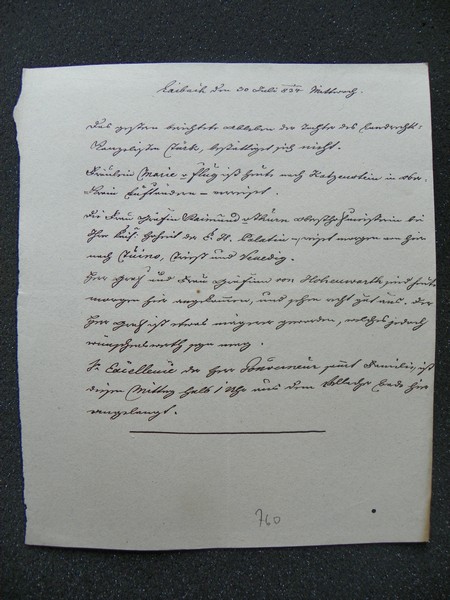 Laibach den 30 Juli 834. Mittwoch.
Das gestern berichtete Ableben der Tochter des Landrechts-
Kanzelisten Türk, bestättiget sich nicht.
Fräulein Marie v Flug ist heute nach Katzenstein in Ober-
verreiset.
Die Frau Gräfin Raimund v Thurn Obersthofmeisterin bei
Ihrer Kais. Hoheit der E. H. Palatin - reiset morgen von hier
nach Duino, Triest und Venedig.
Herr Graf und Frau Gräfinn von Hohenwarth sind heute
morgen hier angekommen, und sehen recht gut aus. der
Herr Graf ist etwas magerer geworden, welches jedoch
wünschenswerth seyn mag.
Sr Excellenz der Herr Gouverneur samt Familie, ist
diesen Mittag halb 1 Uhr aus dem Bade hier
angelangt.
760